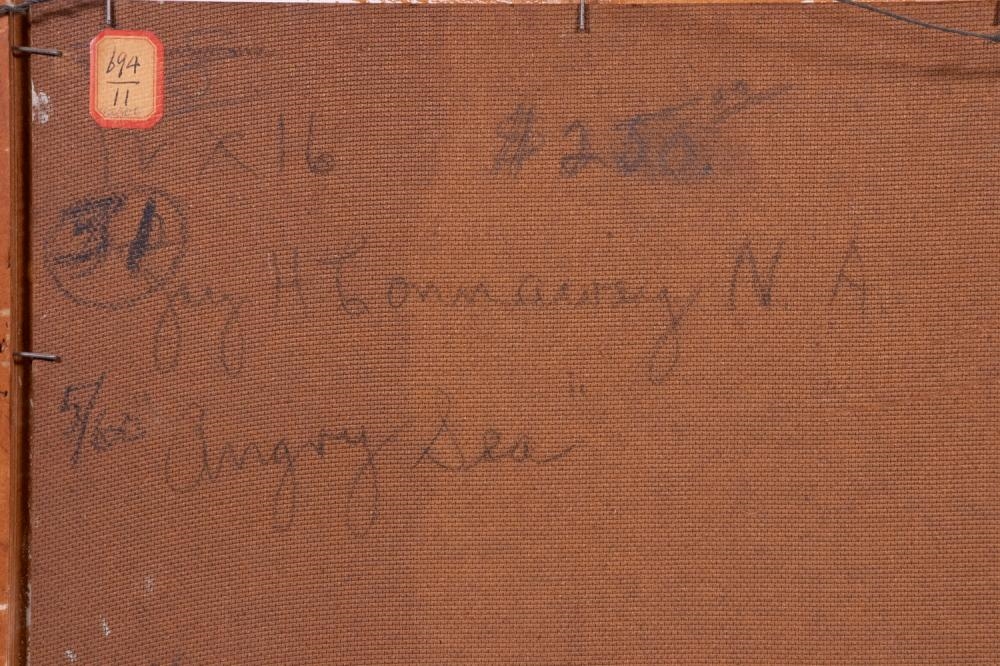 694
11
12 x 16 $250.00
31
Jay H Connaway N. A.
5/60 "Angry Sea"